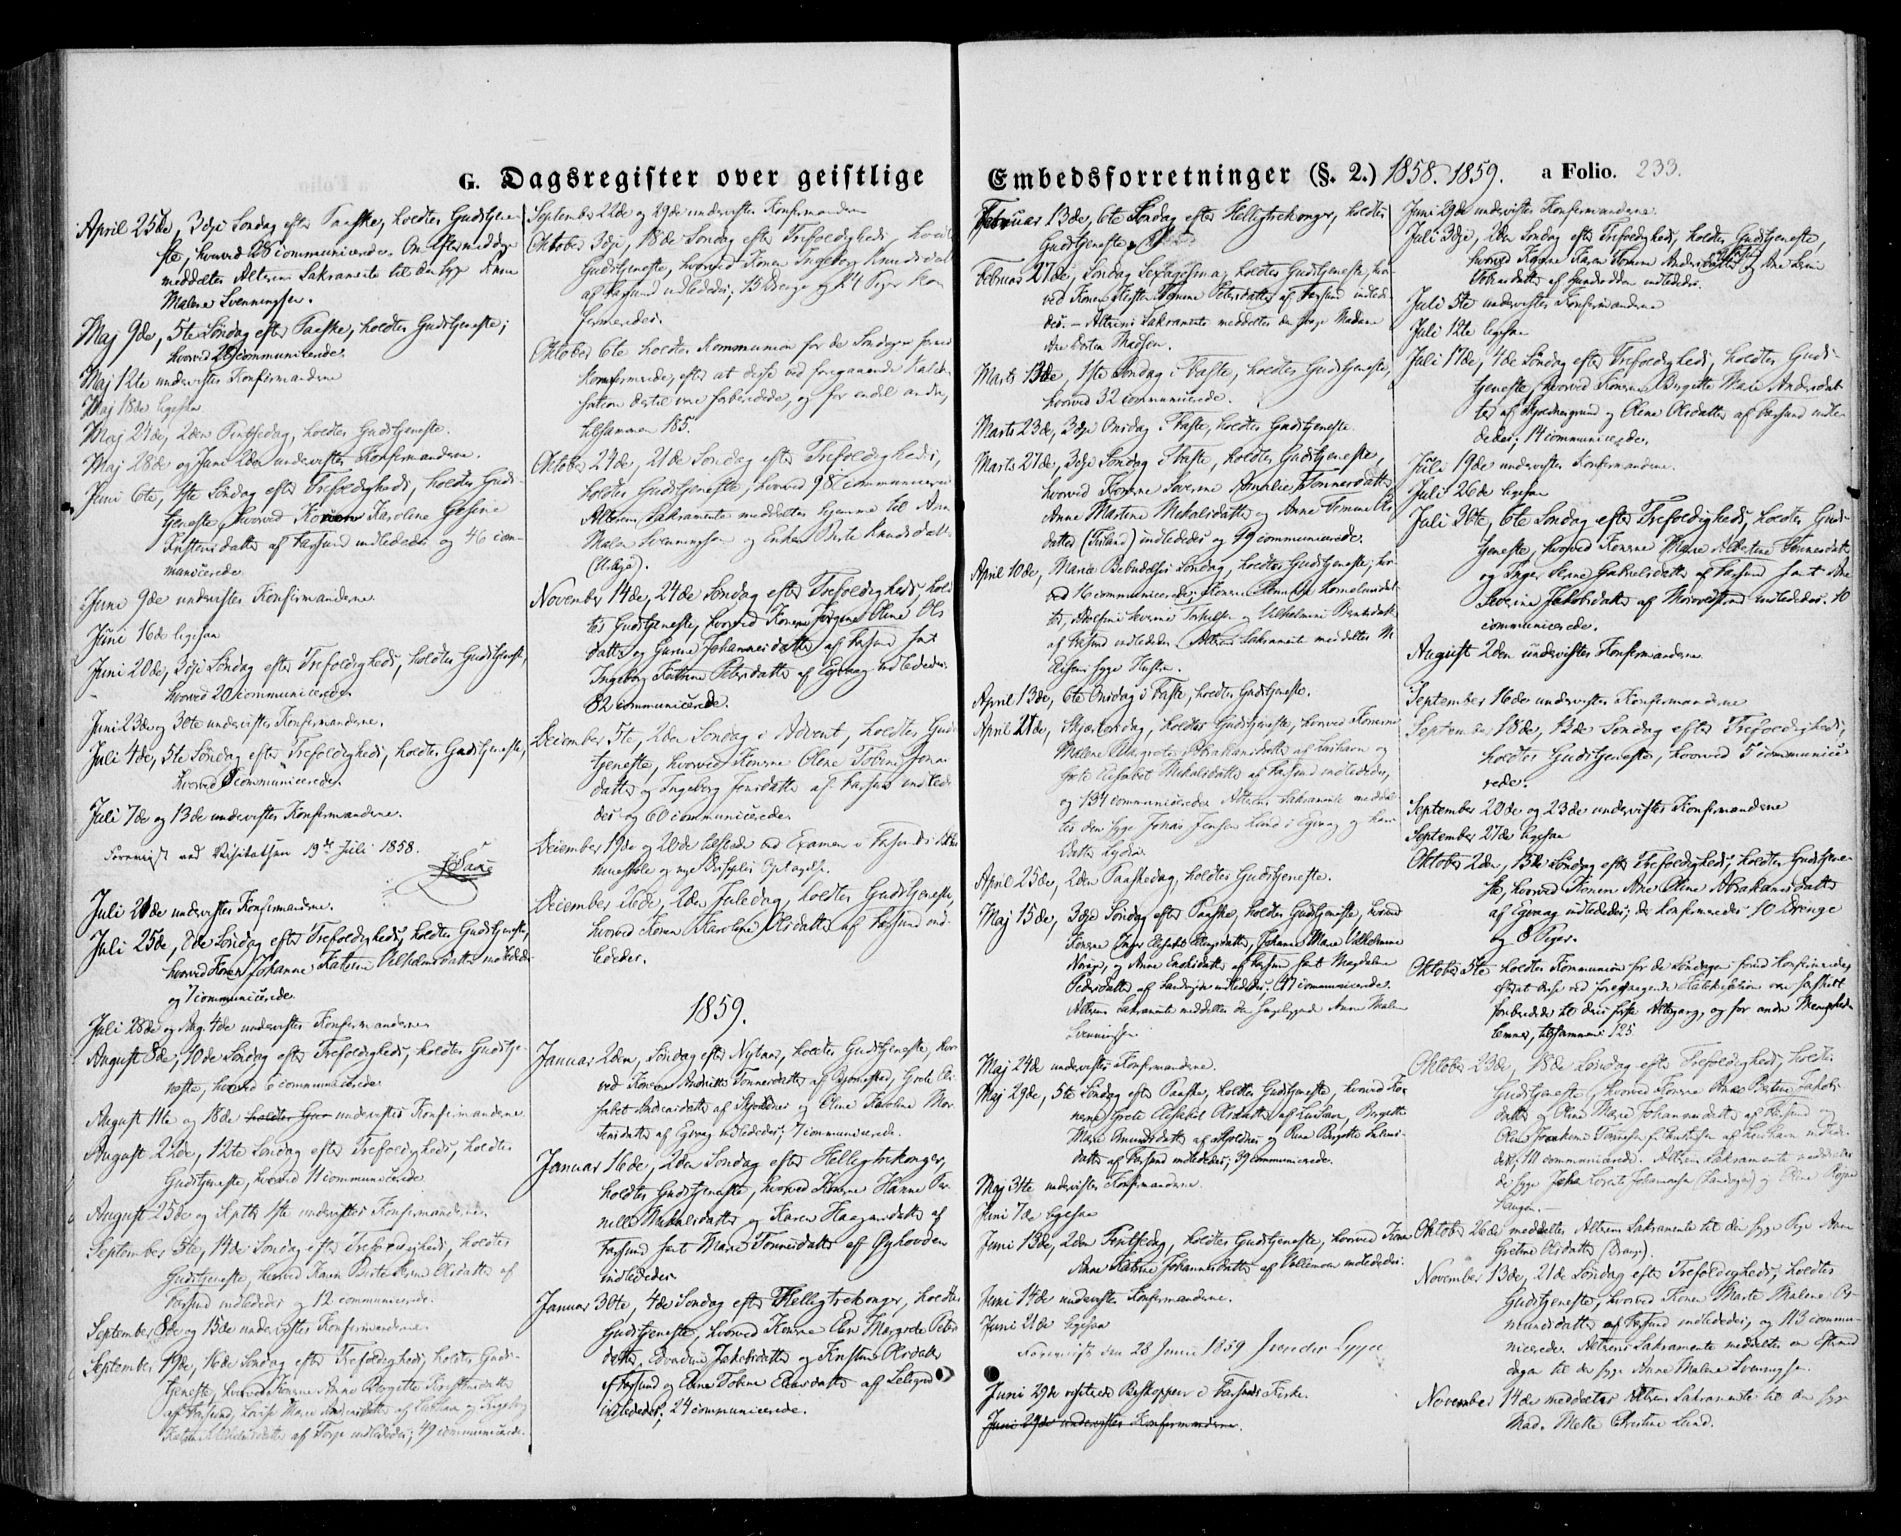 G. Dagsregister over geistlige
April 25de, 3die Søndag efter Paaske, holdtes Gudstjene-
ste, hvorved 28 communicerede. Om Eftermiddagen
meddeltes Alterens Sakramente til den syge Anne
Malene Svenningsen.
Maj 9de, 5te Søndag efter Paaske, holdtes Gudstjeneste;
hvorved 20 communicerede.
Maj 12te undervistes Konfirmanderne
Maj 18de ligesaa
Maj 24de, 2den Pintsedag, holdtes Gudstjeneste.
Maj 28de og Juni 2den undervistes Konfirmanderne.
Juni 6te, 1ste Søndag efter Trefoldigheds, holdtes Guds-
tjeneste, hvorved Konen Karoline Gesine
Kristensdatter af Farsund indlededes og 46 com-
municerede
Juni 9de undervistes Konfirmanderne.
Juni 16de ligesaa
Juni 20de, 3die Søndag efter Trefoldigheds, holdtes Gudstjeneste,
hvorved 20 communicerede
Juni 23de og 30te undervistes Konfirmanderne.
Juli 4de, 5te Søndag efter Trefoldigheds, holdtes Gudstjeneste,
hvorved 8 communicerede.
Juli 7de og 13de undervistes Konfirmanderne.
Foreviist ved Visitatsen 19de Juli 1858.
Juli 21de undervistes Konfirmanderne.
Juli 25de, 8de Søndag efter Trefoldigheds, holdtes Gudstjeneste,
hvorved Konen Johanne Katrine Vilhelmsdatter indlededes
og 7 communicerede
Juli 28de og Aug. 4de undervistes Konfirmanderne
August 8de, 10de Søndag efter Trefoldigheds, holdtes Gudstje-
neste, hvorved 6 communicerede
August 11te og 18de holdtes Gud undervistes Konfirmanderne
August 22de, 12te Søndag efter Trefoldigheds, holdtes
Gudstjeneste, hvorved 11 communicerede
August 25de og Septbr 1ste undervistes Konfirmanderne.
September 5te, 14de Søndag efter Trefoldigheds, holdtes
Gudstjeneste, hvorved Konen Berte Serine Olsdatter af
Farsund indlededes og 12 communicerede.
September 8de og 15de undervistes Konfirmanderne.
September 19de, 16de Søndag efter Trefoldigheds, holdtes Guds-
tjeneste, hvorved Konerne Anne Bergitte Kristensdatter
af Farsund, Lovise Marie Andersdatter af Loshavn og Ingeborg
af Torp indlededes; 49 communicerede.
September 22de og 29de undervistes Konfirmanderne
Oktober 3die, 18de Søndag efter Trefoldigheds, holdtes
Gudstjeneste, hvorved Konen Ingeborg Knudsdatter
af Farsund indlededes; 13 Drenge og 24 Piger kon-
firmeredes.
Oktober 6te holdtes Kommunion for de Søndagen forud
konfirmerede, efter at disse ved foregaaende Kateki-
sation dertil vare forberedede, og for endel andre,
tilsammen 185.
Oktober 24de, 21de Søndag efter Trefoldigheds,
holdtes Gudstjeneste, hvorved 98 communicerede
Alterens Sakramente meddeltes hjemme til Anne
Malene Svenningsen og Enken Berte Knudsdatter
November 14de, 24de Søndag efter Trefoldigheds, hold-
tes Gudstjeneste, hvorved Konerne Jørgine Oline Ols-
datter og Gurine Johannesdatter af Farsund samt
Ingeborg Katrine Petersdatter af Egvaag indlededes.
82 communicerede.
December 5te, 2den Søndag i Advent, holdtes Guds-
tjeneste, hvorved Konerne Olene Tobine Jona-
datter og Ingeborg Jensdatter af Farsund indlede-
des og 60 communicerede.
December 19de og 20de tilstede ved Examen i Farsunds Al-
mueskole og nye Disciples Optagelse.
December 26de, 2den Juledag, holdtes Gudstjeneste,
hvorved Konen Karoline Olsdatter af Farsund ind-
lededes.
1859.
Januar 2den, Søndag efter Nytaar, holdtes Gudstjeneste, hvor-
ved Konerne Andrine Tønnesdatter af Bjørnestad, Grete Eli-
sabet Andreasdatter af Skjoldnes og Oline Karoline Mor-
tensdatter af Egvaag indlededes; 7 communicerede.
Januar 16de, 2den Søndag efter Helligtrekonger,
holdtes Gudstjeneste, hvorved Konerne Hanne Per-
nille Mikkelsdatter og Karen Haagensdatter af
Farsund samt Marie Tønnesdatter af Ørhovden
indlededes
Januar 30te, 4de Søndag efter Helligtrekonger, holdtes
Gudstjeneste, hvorved Konerne Ane Margrete Peders-
datter, Edvardine Jakobsdatter og Kristine Olsdatter
af Farsund og Anne Tobine Enersdatter af
indlededes; 24 communicerede.
Embedsforretninger (§. 2.) 1858. 1859. a Folio. 233.
Februar 13de, 6te Søndag efter Helligtrekonger, holdtes
Gudstjeneste.
Februar 27de, Søndag Sexagesima, holdtes Gudstjeneste, hvor-
ved Konen Kjesten Tomine Petersdatter af Farsund indlede-
des. - Alterens Sakramente meddeltes den syge Madame
Ane Dortea Madsen.
Marts 13de, 1ste Søndag i Faste, holdtes Gudstjeneste,
hvorved 32 communicerede.
Marts 23de, 3die Onsdag i Faste, holdtes Gudstjeneste
Marts 27de, 3die Søndag i Faste, holdtes Gudstjeneste,
hvorved Konerne Severine Amalie Tønnesdatter
Anne Martine Mikalsdatter og Anne Temine Ols-
datter indlededes og 49 communicerede.
April 10de, Mariæ Bebudelses Søndag, holdtes Gudstjeneste, hvor-
ved 16 communicerede; Konerne Kornelius dat-
ter, Adolfine Severine Torkelsen og Vilhelmine Berntsdatter
af Farsund indlededes. Alterens Sakramente meddeltes N
syge Hustru.
April 13de, 6te Onsdag i Faste, holdtes Gudstjeneste.
April 21de, Skjærtorsdag, holdtes Gudstjeneste, hvorved Konerne
Malene Margrete Abrahamsdatter af Loshavn og
Grete Elisabet Mikalsdatter af Farsund indlededes,
og 134 communicerede. Alterens Sakramente meddel-
tes den syge Jonas Jensen Lund i Egvaag og hans
Datter Lydia.
April 25de, 2den Paaskedag, holdtes Gudstjeneste.
Maj 15de, 3die Søndag efter Paaske, holdtes Gudstjeneste, hvorved
Konerne Inger Elisabet, Johanne Marie Vilhelmine
og Anne Endresdatter af Farsund samt Magdalene
Pedersdatter af indlededes; 47 communicerede.
Alterens Sakramente meddeltes den sengeliggende Anne Malene
Svenningsen
Maj 24de undervistes Konfirmanderne.
Maj 29de, 5te Søndag efter Paaske, holdtes Gudstjeneste, hvorved Ko-
nerne Grete Elisabet Olsdatter af Loshavn, Bergitte
Marie Amundsdatter af Skjoldnes og Rina Bergitte Salmers-
datter af Farsund indlededes; 39 communicerede.
Maj 31te undervistes Konfirmanderne.
Juni 7de ligesaa
Juni 13de, 2den Pintsedag, holdtes Gudstjeneste, hvorved Konen
Anne Katrine Johannesdatter af indlededes.
Juni 14de undervistes Konfirmanderne.
Juni 21de ligesaa
Foreviist den 28 Junii 1859
Juni 29de visiterede Biskoppen i Farsunds Kirke.
Juni 29de undervistes Konfirmanderne.
Juni 29de undervistes Konfirmanderne.
Juli 3die, 2den Søndag efter Trefoldigheds, holdtes Gudstjeneste,
hvorved Konerne Karen Tomine Andersdatter og Ane Serine
af indlededes.
Juli 5te undervistes Konfirmanderne
Juli 12te ligesaa
Juli 17de, 4de Søndag efter Trefoldigheds, holdtes Guds-
tjeneste, hvorved Konerne Bergitte Marie Andersdat-
ter af og Oline Olsdatter af Farsund indle-
dedes; 14 communicerede.
Juli 19de undervistes Konfirmanderne.
Juli 26de ligesaa
Juli 30te, 6te Søndag efter Trefoldigheds, holdtes Guds-
tjeneste, hvorved Konerne Marie Albertine Tønnesdatter
og Inger Serine Gabrielsdatter af Farsund samt Ane
Severine Jakobsdatter af indlededes. 10
communicerede.
August 2den undervistes Konfirmanderne
September 16de undervistes Konfirmanderne
September 18de, 13de Søndag efter Trefoldigheds,
holdtes Gudstjeneste, hvorved 5 communice-
rede.
September 20de og 23de undervistes Konfirmanderne
September 27de ligesaa
Oktober 2den, 15de Søndag efter Trefoldigheds, holdtes Gudstjene-
ste, hvorved Konen Ane Oline Abrahamsdatter
af Egvaag indlededes; der konfirmeredes 10 Drenge
og 8 Piger.
Oktober 5te holdtes Kommunion for de Søndagen forud Konfirmerede
efterat disse ved foregaaende Katekisation vare særskilt
forberedede til deres første Altergang, og for andre Menigheds-
lemmer, tilsammen 125
Oktober 23de, 18de Søndag efter Trefoldigheds, holdtes
Gudstjeneste, hvorved Konerne Anne Bertine Jakobs-
datter og Oline Marie Johannesdatter af Farsund og
Olene Joakime Tønnesen af Loshavn indlede-
des; 44 communicerede. Alterens Sakramente meddeltes
de syge Johannesen og
Haugen.
Oktober 26de meddeltes Alterens Sakramente til den syge Pige Anne
Gurine Olsdatter.
November 13de, 21de Søndag efter Trefoldigheds, holdtes
Gudstjeneste, hvorved Konen Marte Malene Os-
mundsdatter af Farsund indlededes, og 113 commu-
nicerede. Alterens Sakramente meddeltes om Eftermid-
dagen til den syge Anne Malene Svenningsen.
November 14de meddeltes Alterens Sakramente til den syge
Mad. Mette Christine Lund.